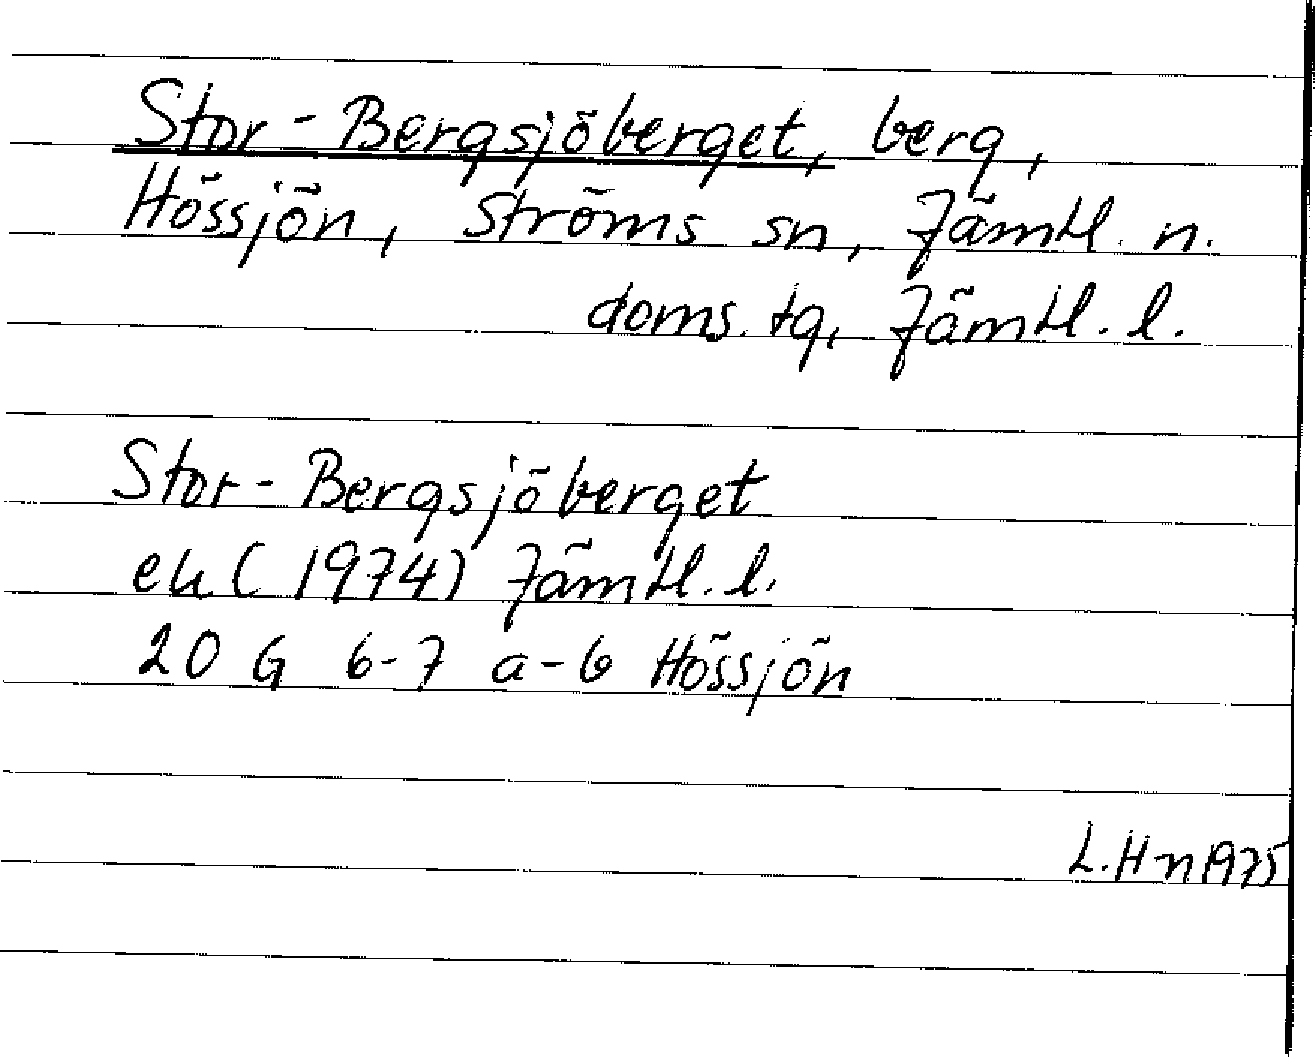 Stor-Bergsjöberget, berg,
Hössjön, Ströms sn, Jämtl. n.
doms. tg, Jämtl. l.
Stor-Bergsjöberget
ek (1974) Jämtl. l.
20 G 6-7 a-b Hössjön
L. H-n 1975